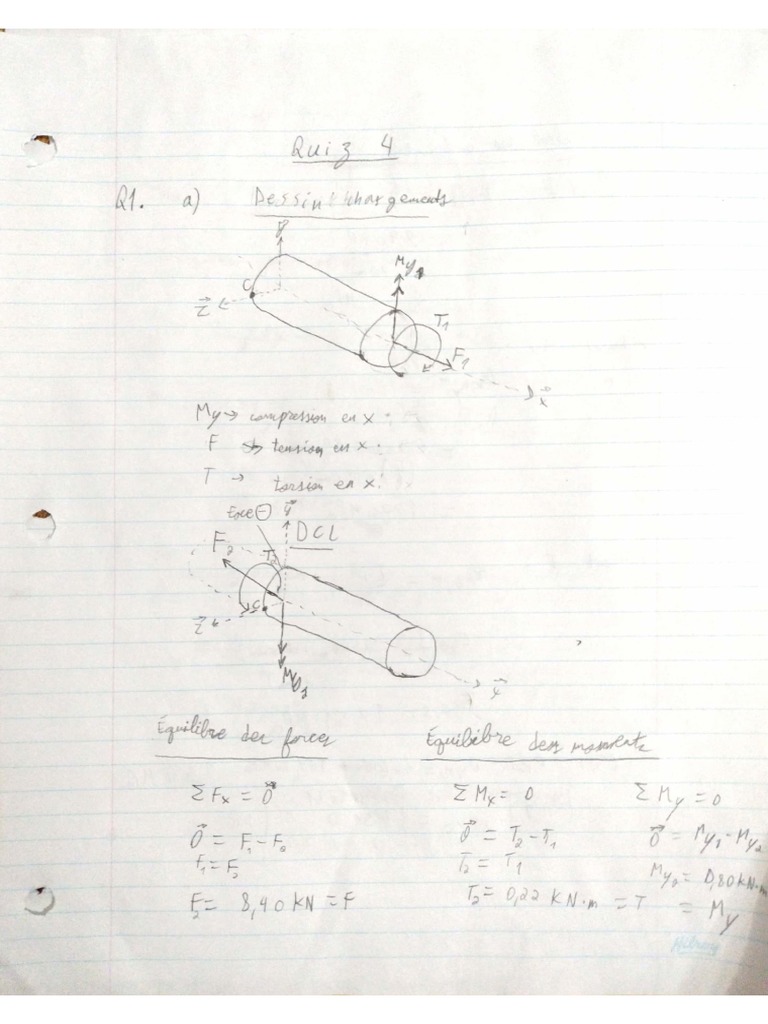 Quiz 4
Q1. a) Dessin/chargements
y⃗
C
z⃗
My1
T1
F1
x⃗
My → compression en x :
F → tension en x :
T → torsion en x :
Face ⊖ y⃗
DCL
F2
T2
C
z⃗
x⃗
Équilibre des forces
Σ Fx = 0⃗
0⃗ = F1 - F2
F1 = F2
F2 = 8,40 kN = F
Équilibre des moments
Σ Mx = 0
0⃗ = T2 - T1
T2 = T1
T2 = 0,22 KN·m = T
Σ My = 0
0⃗ = My1 - My2
My2 = 0,80 kN·m
= My
Hilroy